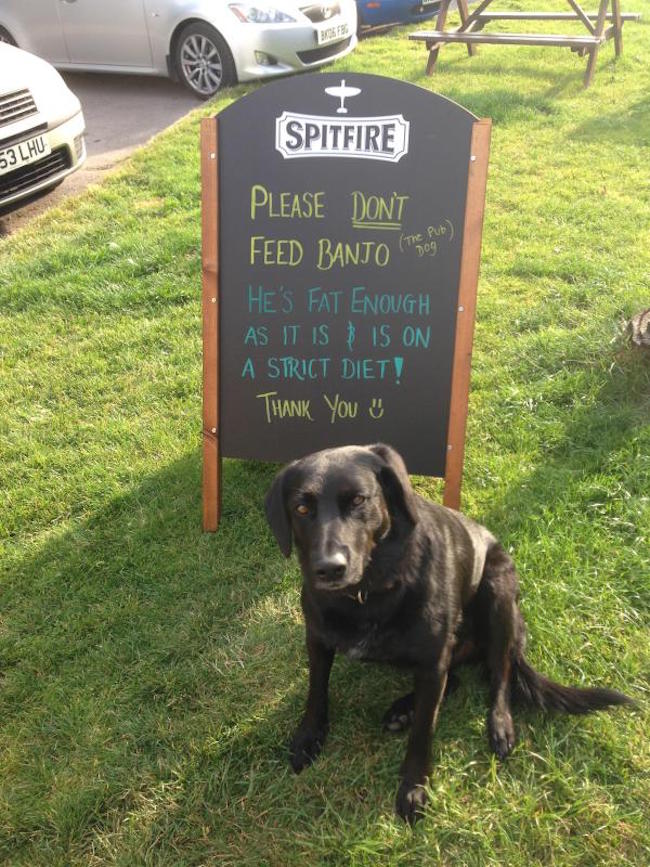 BK06 FBG
53 LHU
SPITFIRE
PLEASE DON'T
FEED BANJO (The Pub Dog)
HE'S FAT ENOUGH
AS IT IS & IS ON
A STRICT DIET!
THANK YOU